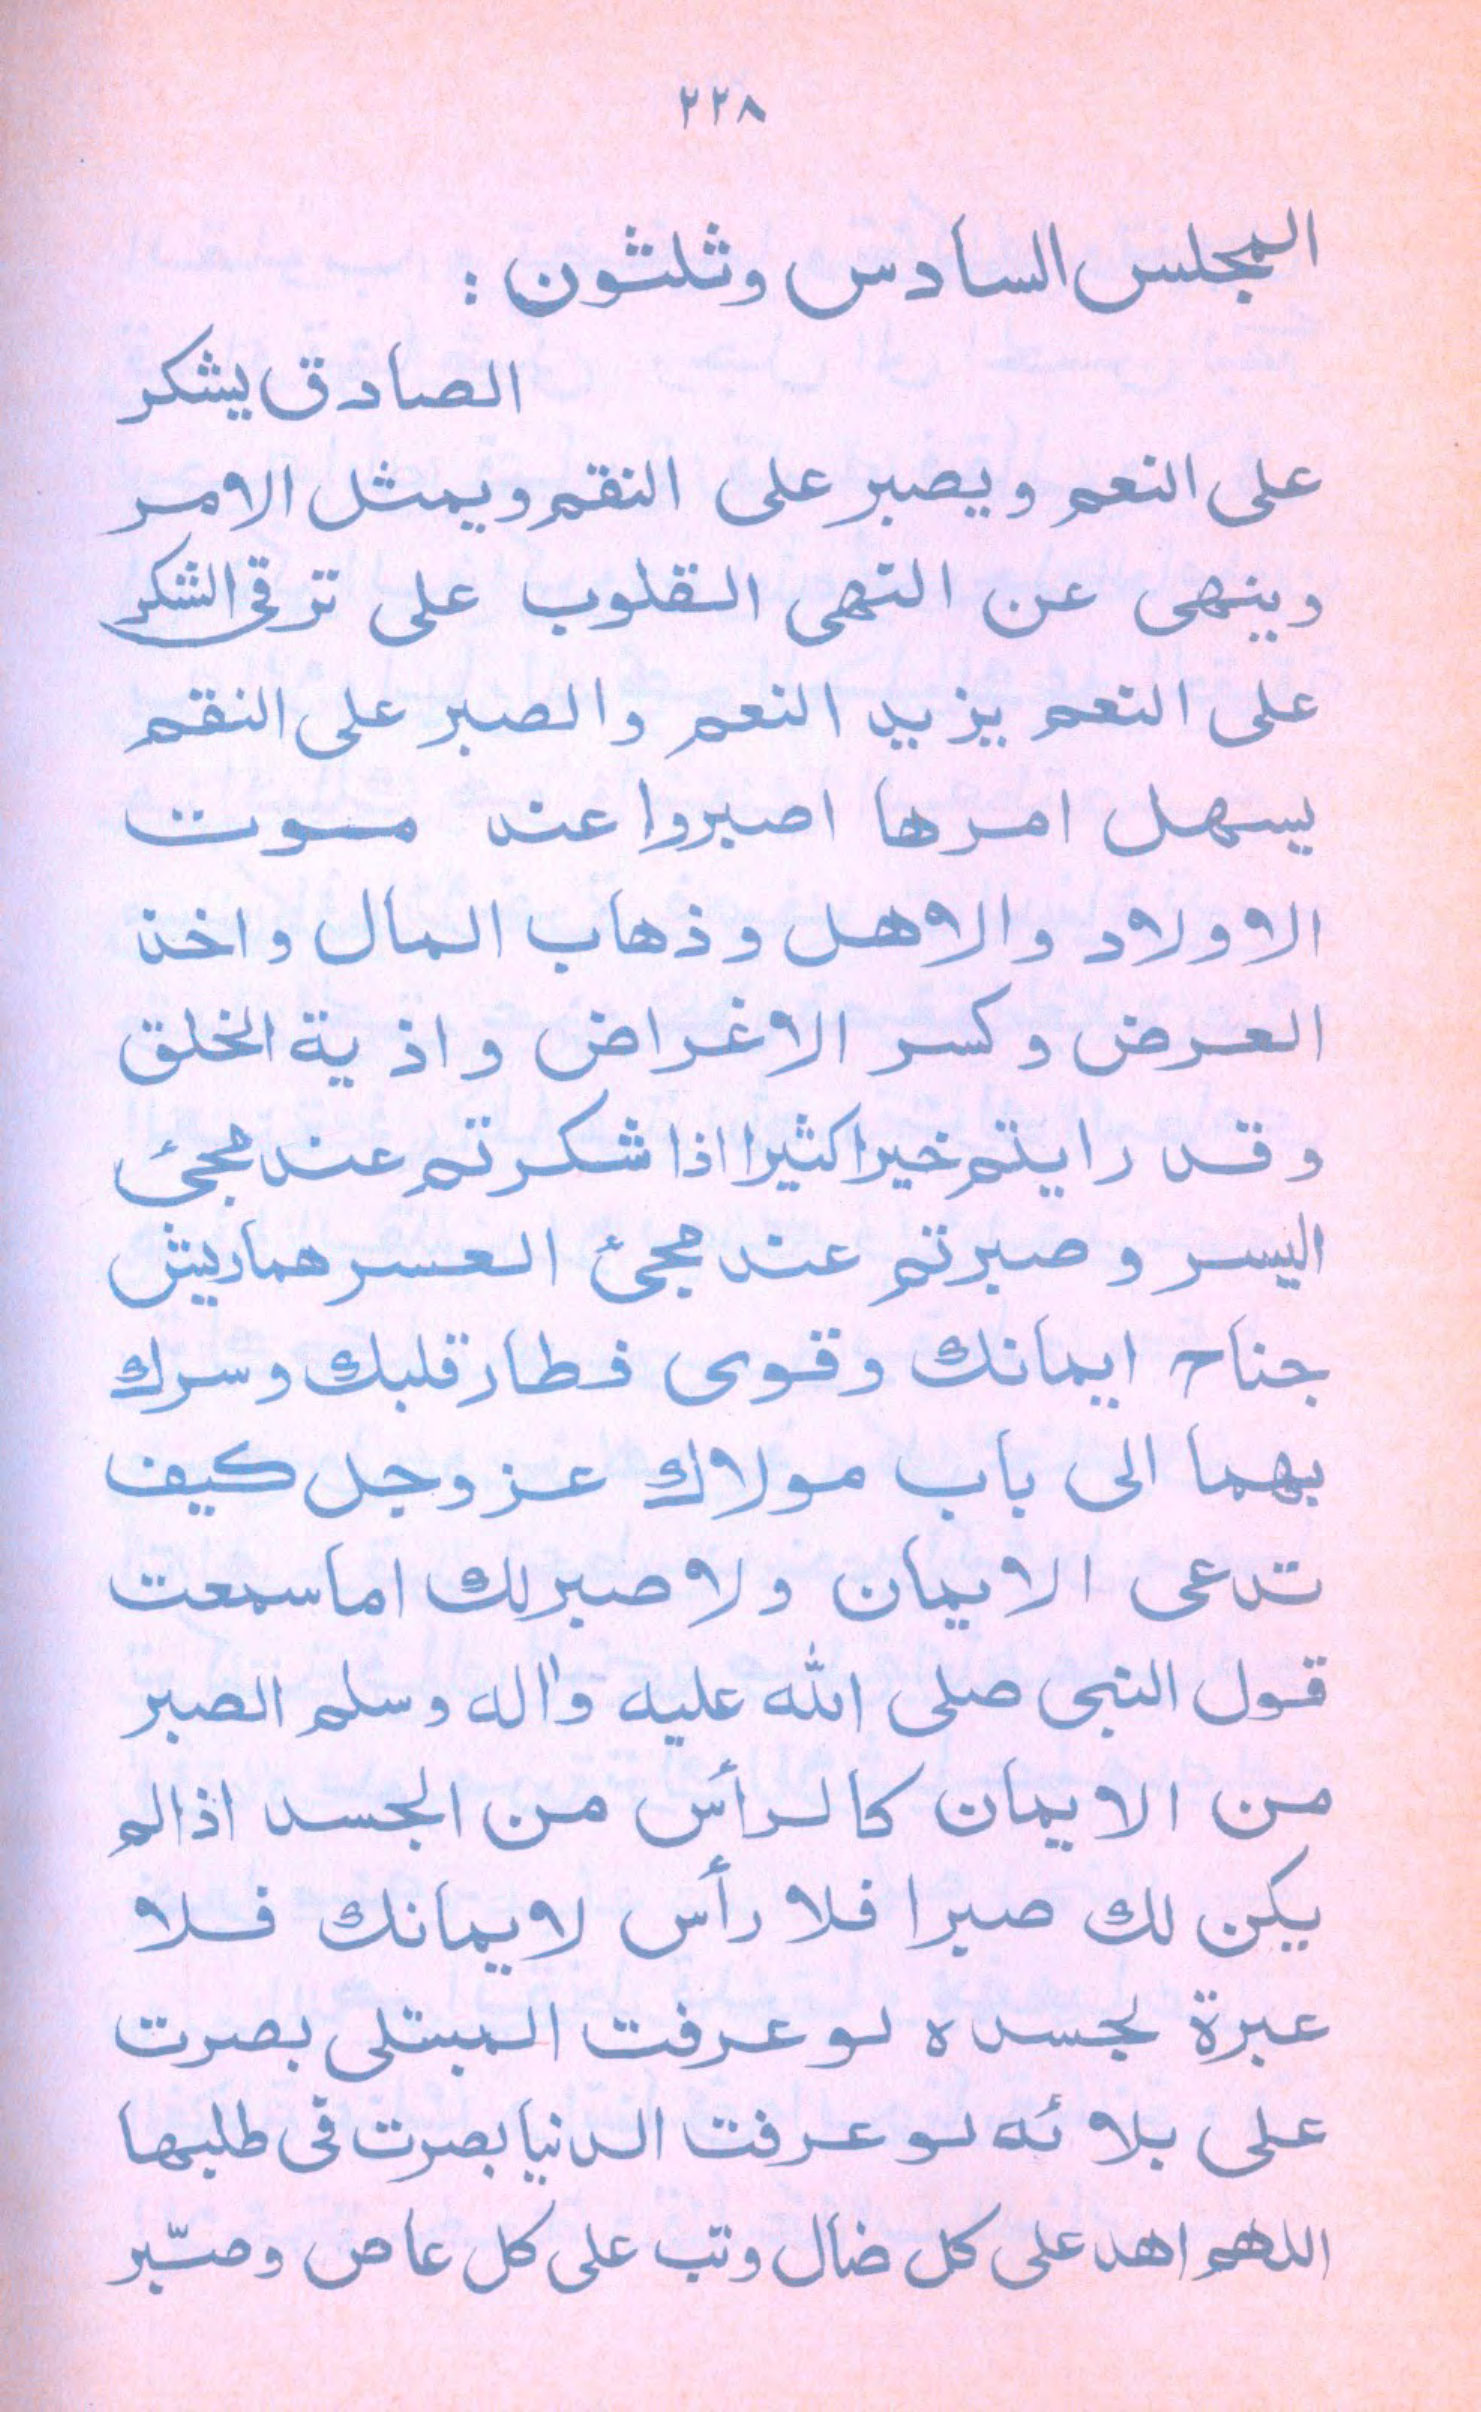 ٢٢٨
المجلس السادس وثلثون :
الصادق يشكر
على النعم ويصبر على النقم ويمثل الامر
وينهى عن النهى القلوب على ترقى الشكر
على النعم يزيد النعم والصبر على النقم
يسهل امرها اصبروا عند موت
الاولاد والاهل وذهاب المال واخذ
العرض وكسر الاغراض واذية الخلق
وقد رايتم خيرا كثيرا اذا شكرتم عند مجئ
اليسر وصبرتم عند مجئ العسر هما ريش
جناح ايمانك وقوى فطار قلبك وسرك
بهما الى باب مولاك عزوجل كيف
تدعى الايمان ولا صبر لك اما سمعت
قول النبى صلى الله عليه واٰله وسلم الصبر
من الايمان كالرأس من الجسد اذا لم
يكن لك صبرا فلا رأس لايمانك فلا
عبرة لجسده لو عرفت المبتلى بصرت
على بلائه لو عرفت الدنيا بصرت فى طلبها
اللهم اهد على كل ضال وتب على كل عاص وصبّر